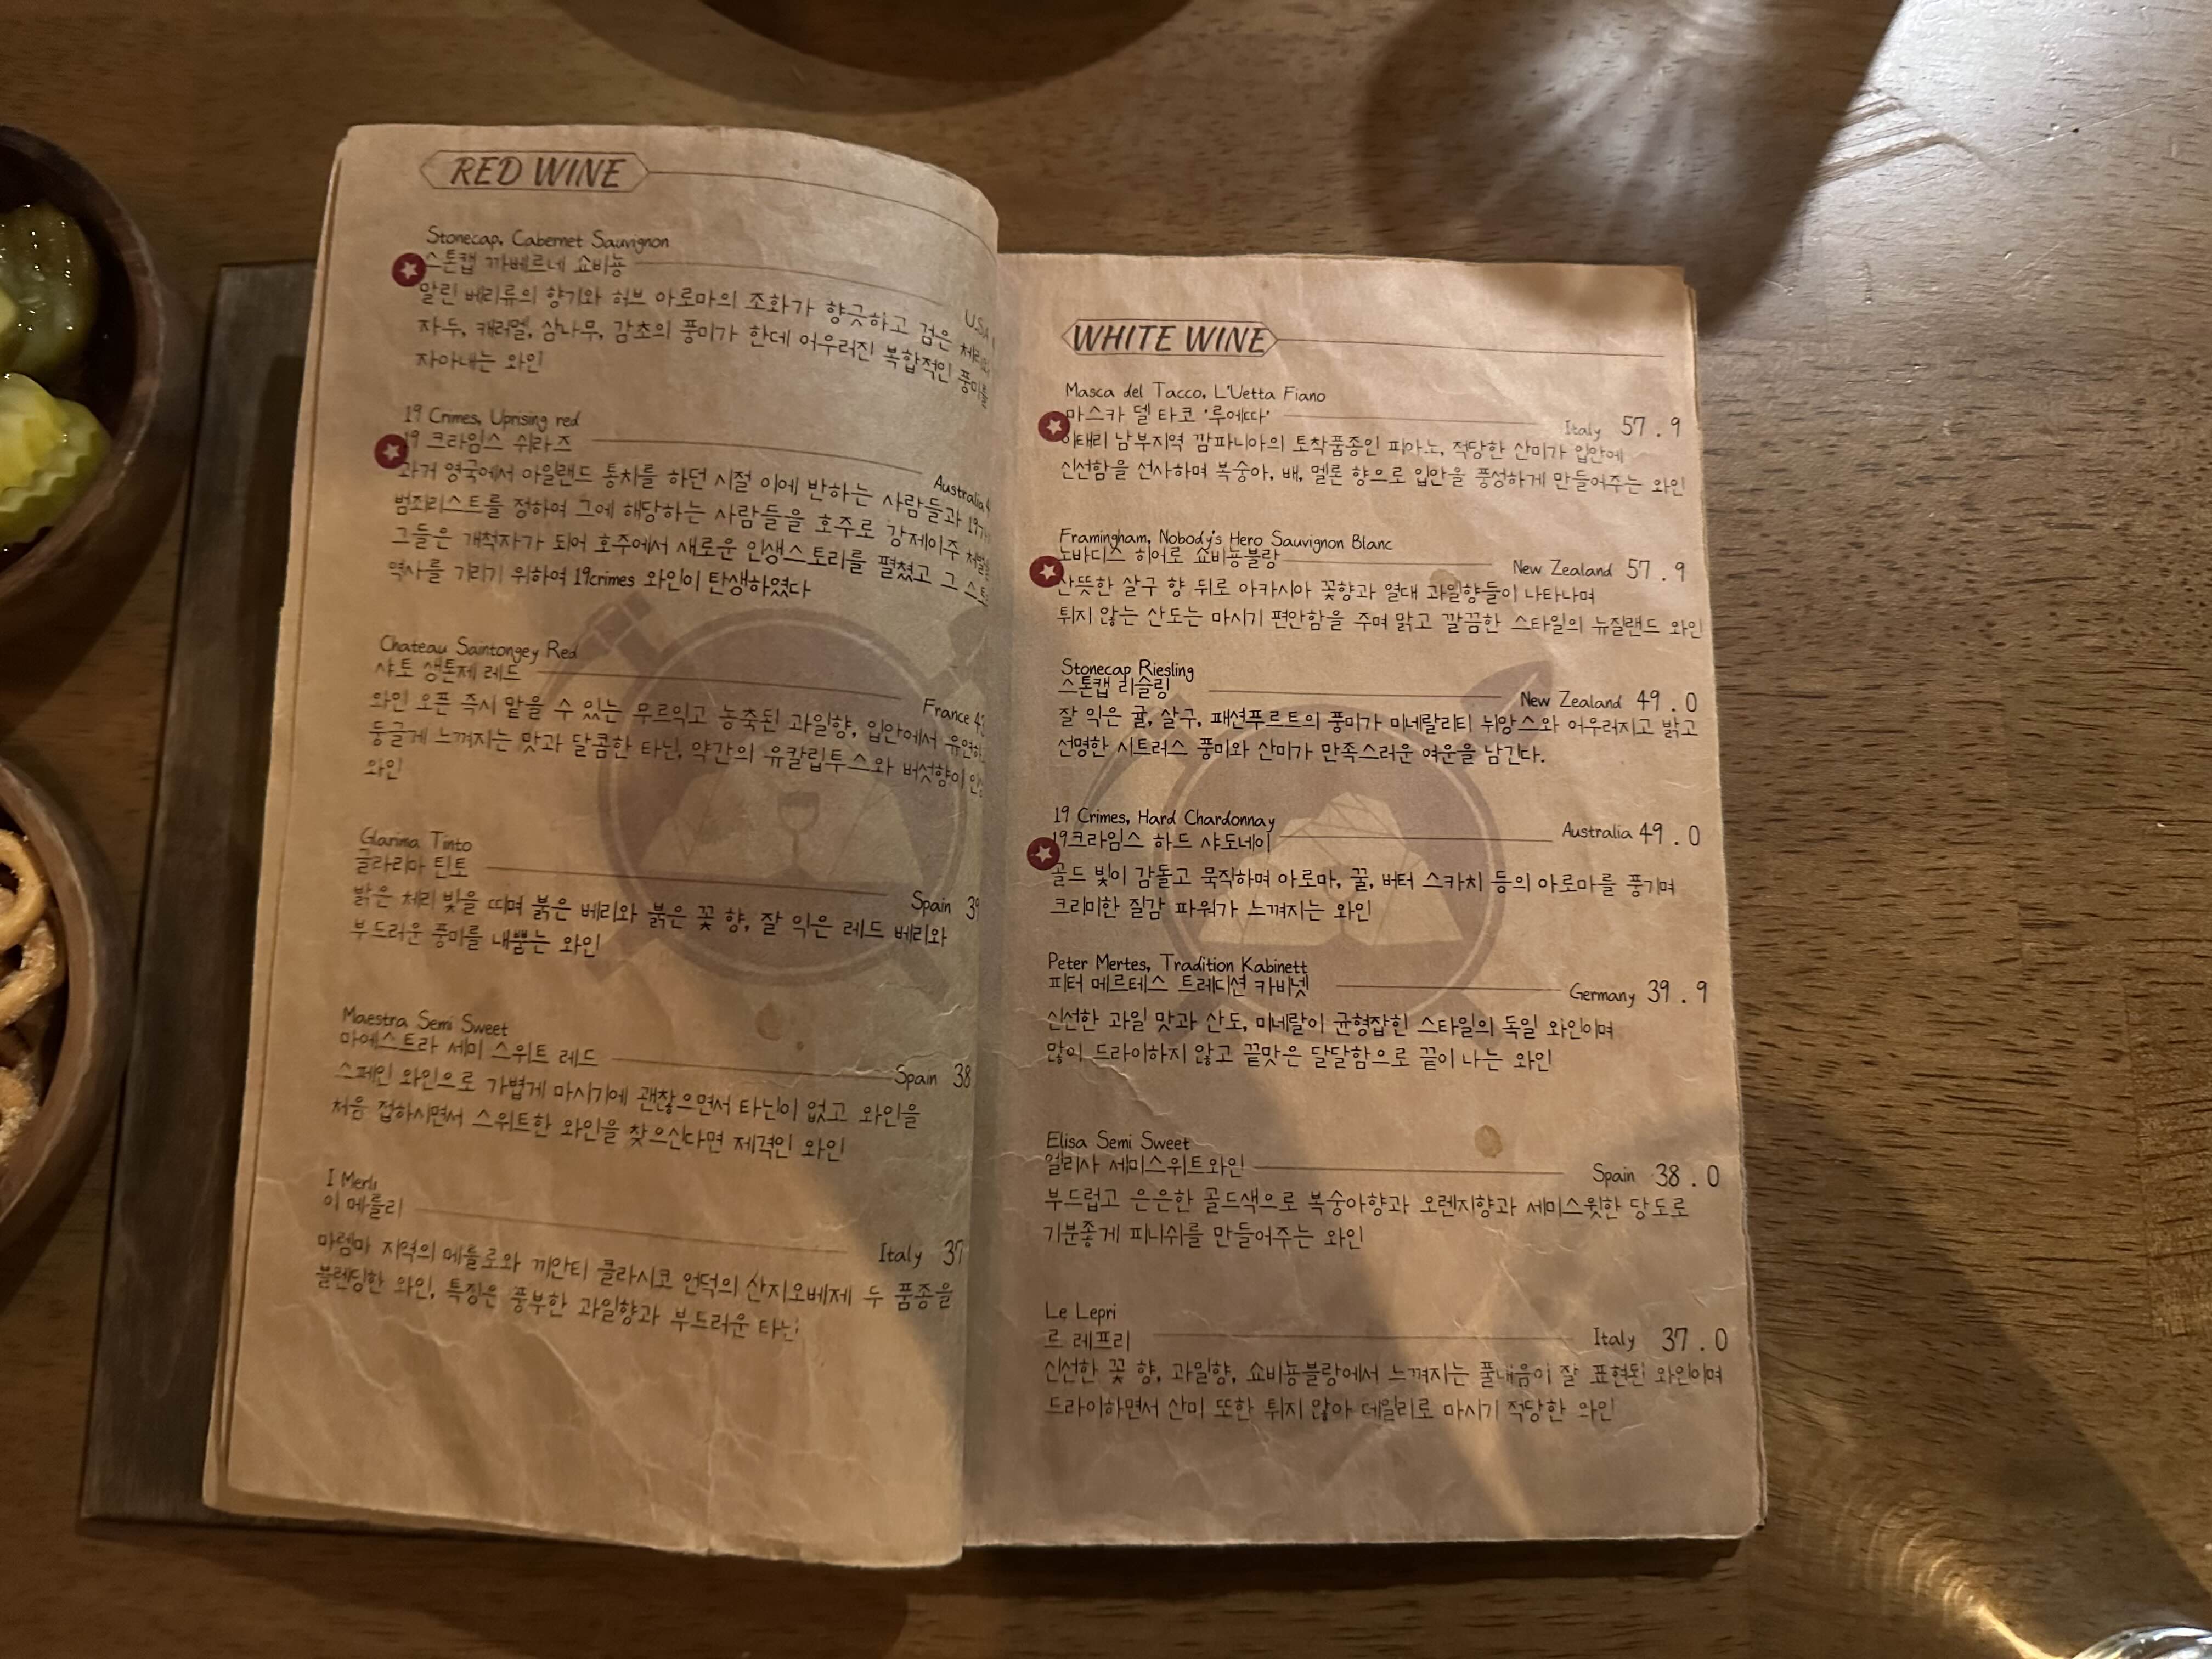 RED WINE
Stonecap, Cabernet Sauvignon
스톤캡 까베르네 쇼비뇽
U.S.A
말린 베리류의 향기와 허브 아로마의 조화가 향긋하고 검은
자두, 캐러멜, 삼나무, 감초의 풍미가 한데 어우러진 복합적인 풍미를
자아내는 와인
19 Crimes, Uprising red
19 크라임스 쉬라즈
Australia
과거 영국에서 아일랜드 통치를 하던 시절 이에 반하는 사람들과
범죄리스트를 정하여 그에 해당하는 사람들을 호주로 강제이주
그들은 개척자가 되어 호주에서 새로운 인생스토리를 펼쳤고 그
역사를 기리기 위하여 19crimes 와인이 탄생하였다
Chateau Saintongey Red
샤토 생톤제 레드
France
와인 오픈 즉시 맡을 수 있는 무르익고 농축된 과일향, 입안에서
둥글게 느껴지는 맛과 달콤한 타닌, 약간의 유칼립투스와 버섯향이
와인
Glarima Tinto
글라리아 틴토
Spain
밝은 체리 빛을 띠며 붉은 베리와 붉은 꽃 향, 잘 익은 레드 베리와
부드러운 풍미를 내뿜는 와인
Maestra Semi Sweet
마에스트라 세미 스위트 레드
Spain 38
스페인 와인으로 가볍게 마시기에 괜찮으면서 타닌이 없고 와인을
처음 접하시면서 스위트한 와인을 찾으신다면 제격인 와인
I Merli
이 메를리
Italy 37
마렘마 지역의 메를로와 끼안티 클라시코 언덕의 산지오베제 두 품종을
블렌딩한 와인, 특징은 풍부한 과일향과 부드러운 타닌
WHITE WINE
Masca del Tacco, L'Uetta Fiano
마스카 델 타코 '루에따'
Italy 57.9
이태리 남부지역 깜파니아의 토착품종인 피아노, 적당한 산미가 입안에
신선함을 선사하며 복숭아, 배, 멜론 향으로 입안을 풍성하게 만들어주는 와인
Framingham, Nobody's Hero Sauvignon Blanc
노바디스 히어로 쇼비뇽블랑
New Zealand 57.9
산뜻한 살구 향 뒤로 아카시아 꽃향과 열대 과일향들이 나타나며
튀지 않는 산도는 마시기 편안함을 주며 맑고 깔끔한 스타일의 뉴질랜드 와인
Stonecap Riesling
스톤캡 리슬링
New Zealand 49.0
잘 익은 귤, 살구, 패션푸르트의 풍미가 미네랄리티 뉘앙스와 어우러지고 밝고
선명한 시트러스 풍미와 산미가 만족스러운 여운을 남긴다.
19 Crimes, Hard Chardonnay
19크라임스 하드 샤도네이
Australia 49.0
골드 빛이 감돌고 묵직하며 아로마, 꿀, 버터 스카치 등의 아로마를 풍기며
크리미한 질감 파워가 느껴지는 와인
Peter Mertes, Tradition Kabinett
피터 메르테스 트레디션 카비넷
Germany 39.9
신선한 과일 맛과 산도, 미네랄이 균형잡힌 스타일의 독일 와인이며
많이 드라이하지 않고 끝맛은 달달함으로 끝이 나는 와인
Elisa Semi Sweet
엘리사 세미스위트와인
Spain 38.0
부드럽고 은은한 골드색으로 복숭아향과 오렌지향과 세미스윗한 당도로
기분좋게 피니쉬를 만들어주는 와인
Le Lepri
르 레프리
Italy 37.0
신선한 꽃 향, 과일향, 쇼비뇽블랑에서 느껴지는 풀내음이 잘 표현된 와인이며
드라이하면서 산미 또한 튀지 않아 데일리로 마시기 적당한 와인